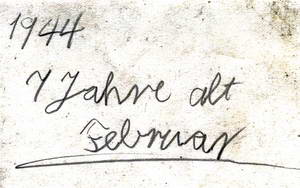 1944
7 Jahre alt
Februar